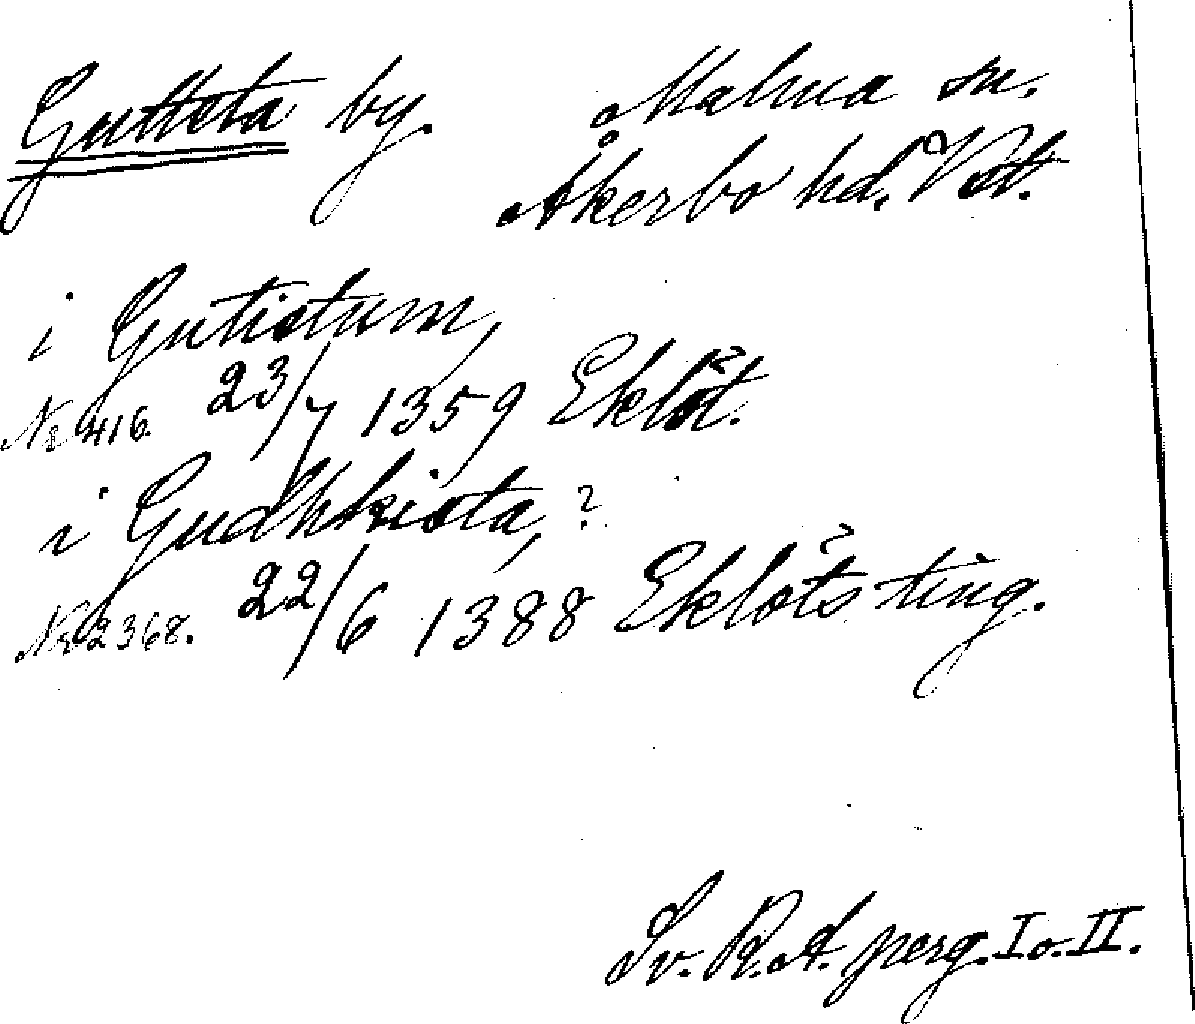 Guttsta by. Malma sn.
Åkerbo hd. Vstm.
i Gutistum,
Nr 416. 23/7 1359 Eklöt.
i Gudhkista, ?
Nr 2368. 22/6 1388 Eklöts ting.
Sv. R. A. perg. I o. II.